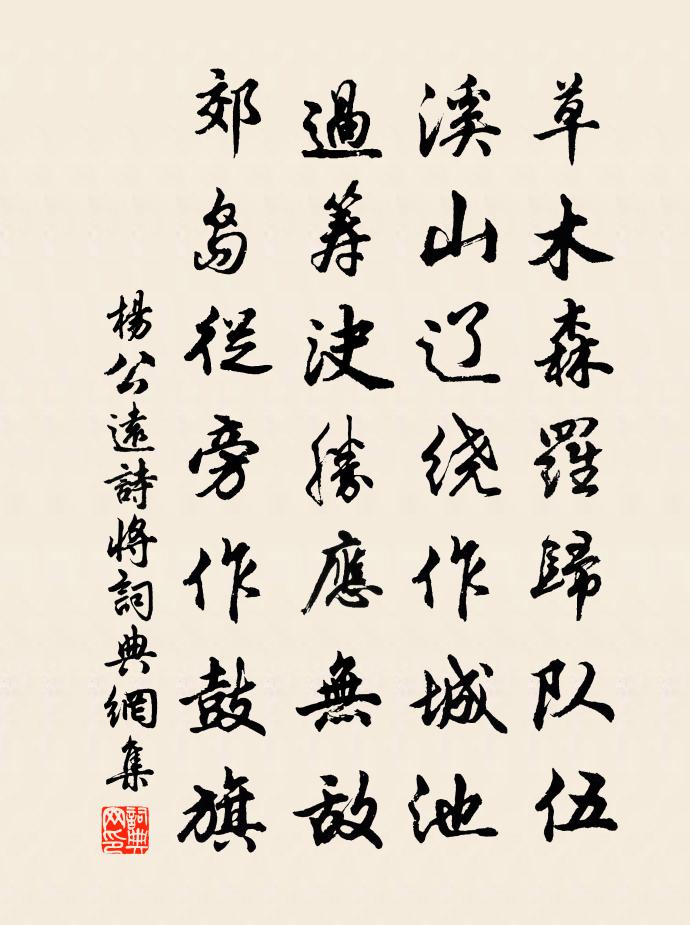 草木森羅歸队伍
溪山辽绕作城池
過筭決勝應無敌
郊岛從旁作鼓旗
楊公遠詩將詞典網集
詞典网印